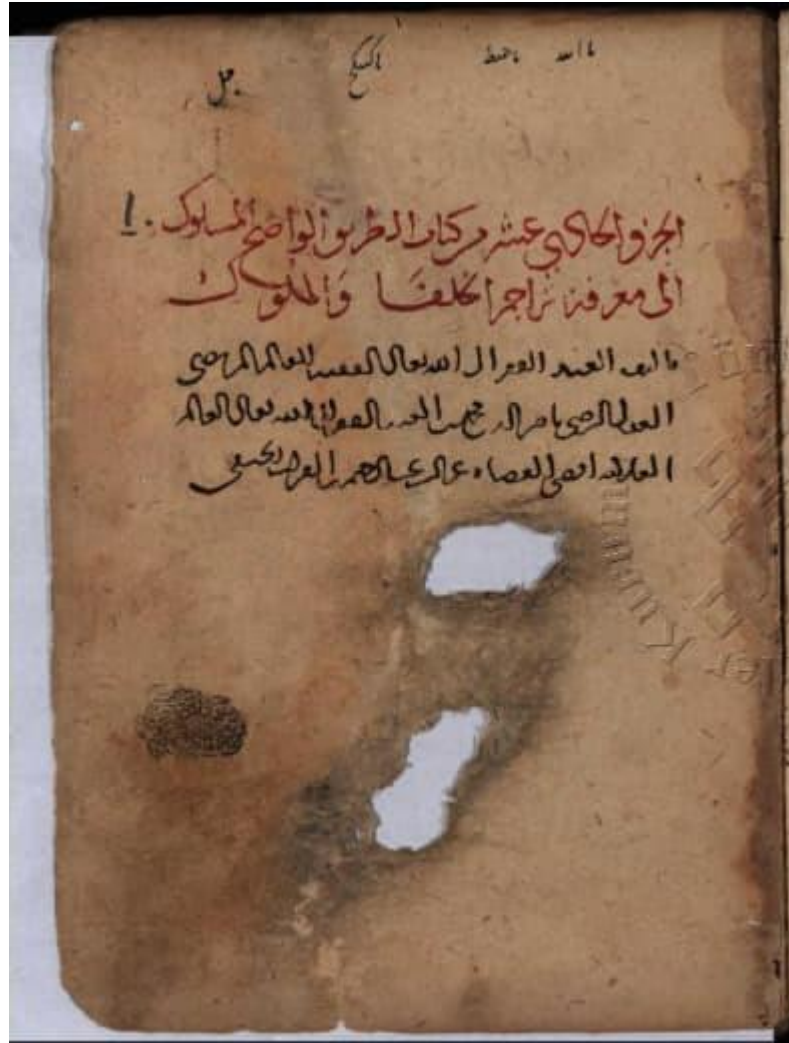 يا الله يا حفيظ يا كبيكج
الجزو الحادي عشر من كتاب الطريق الواضح المسلوك
الى معرفة تراجم الخلفا والملوك
تاليف العبد الفقير الى الله تعالى الفقيه العالم المرضي
العدل الرضي ناصر الدين محمد بن العبد الفقير الى الله تعالى العالم
العلامه اقضى القضاه عز الدين عبد الرحيم بن الفرات الحنفي
er Kurum